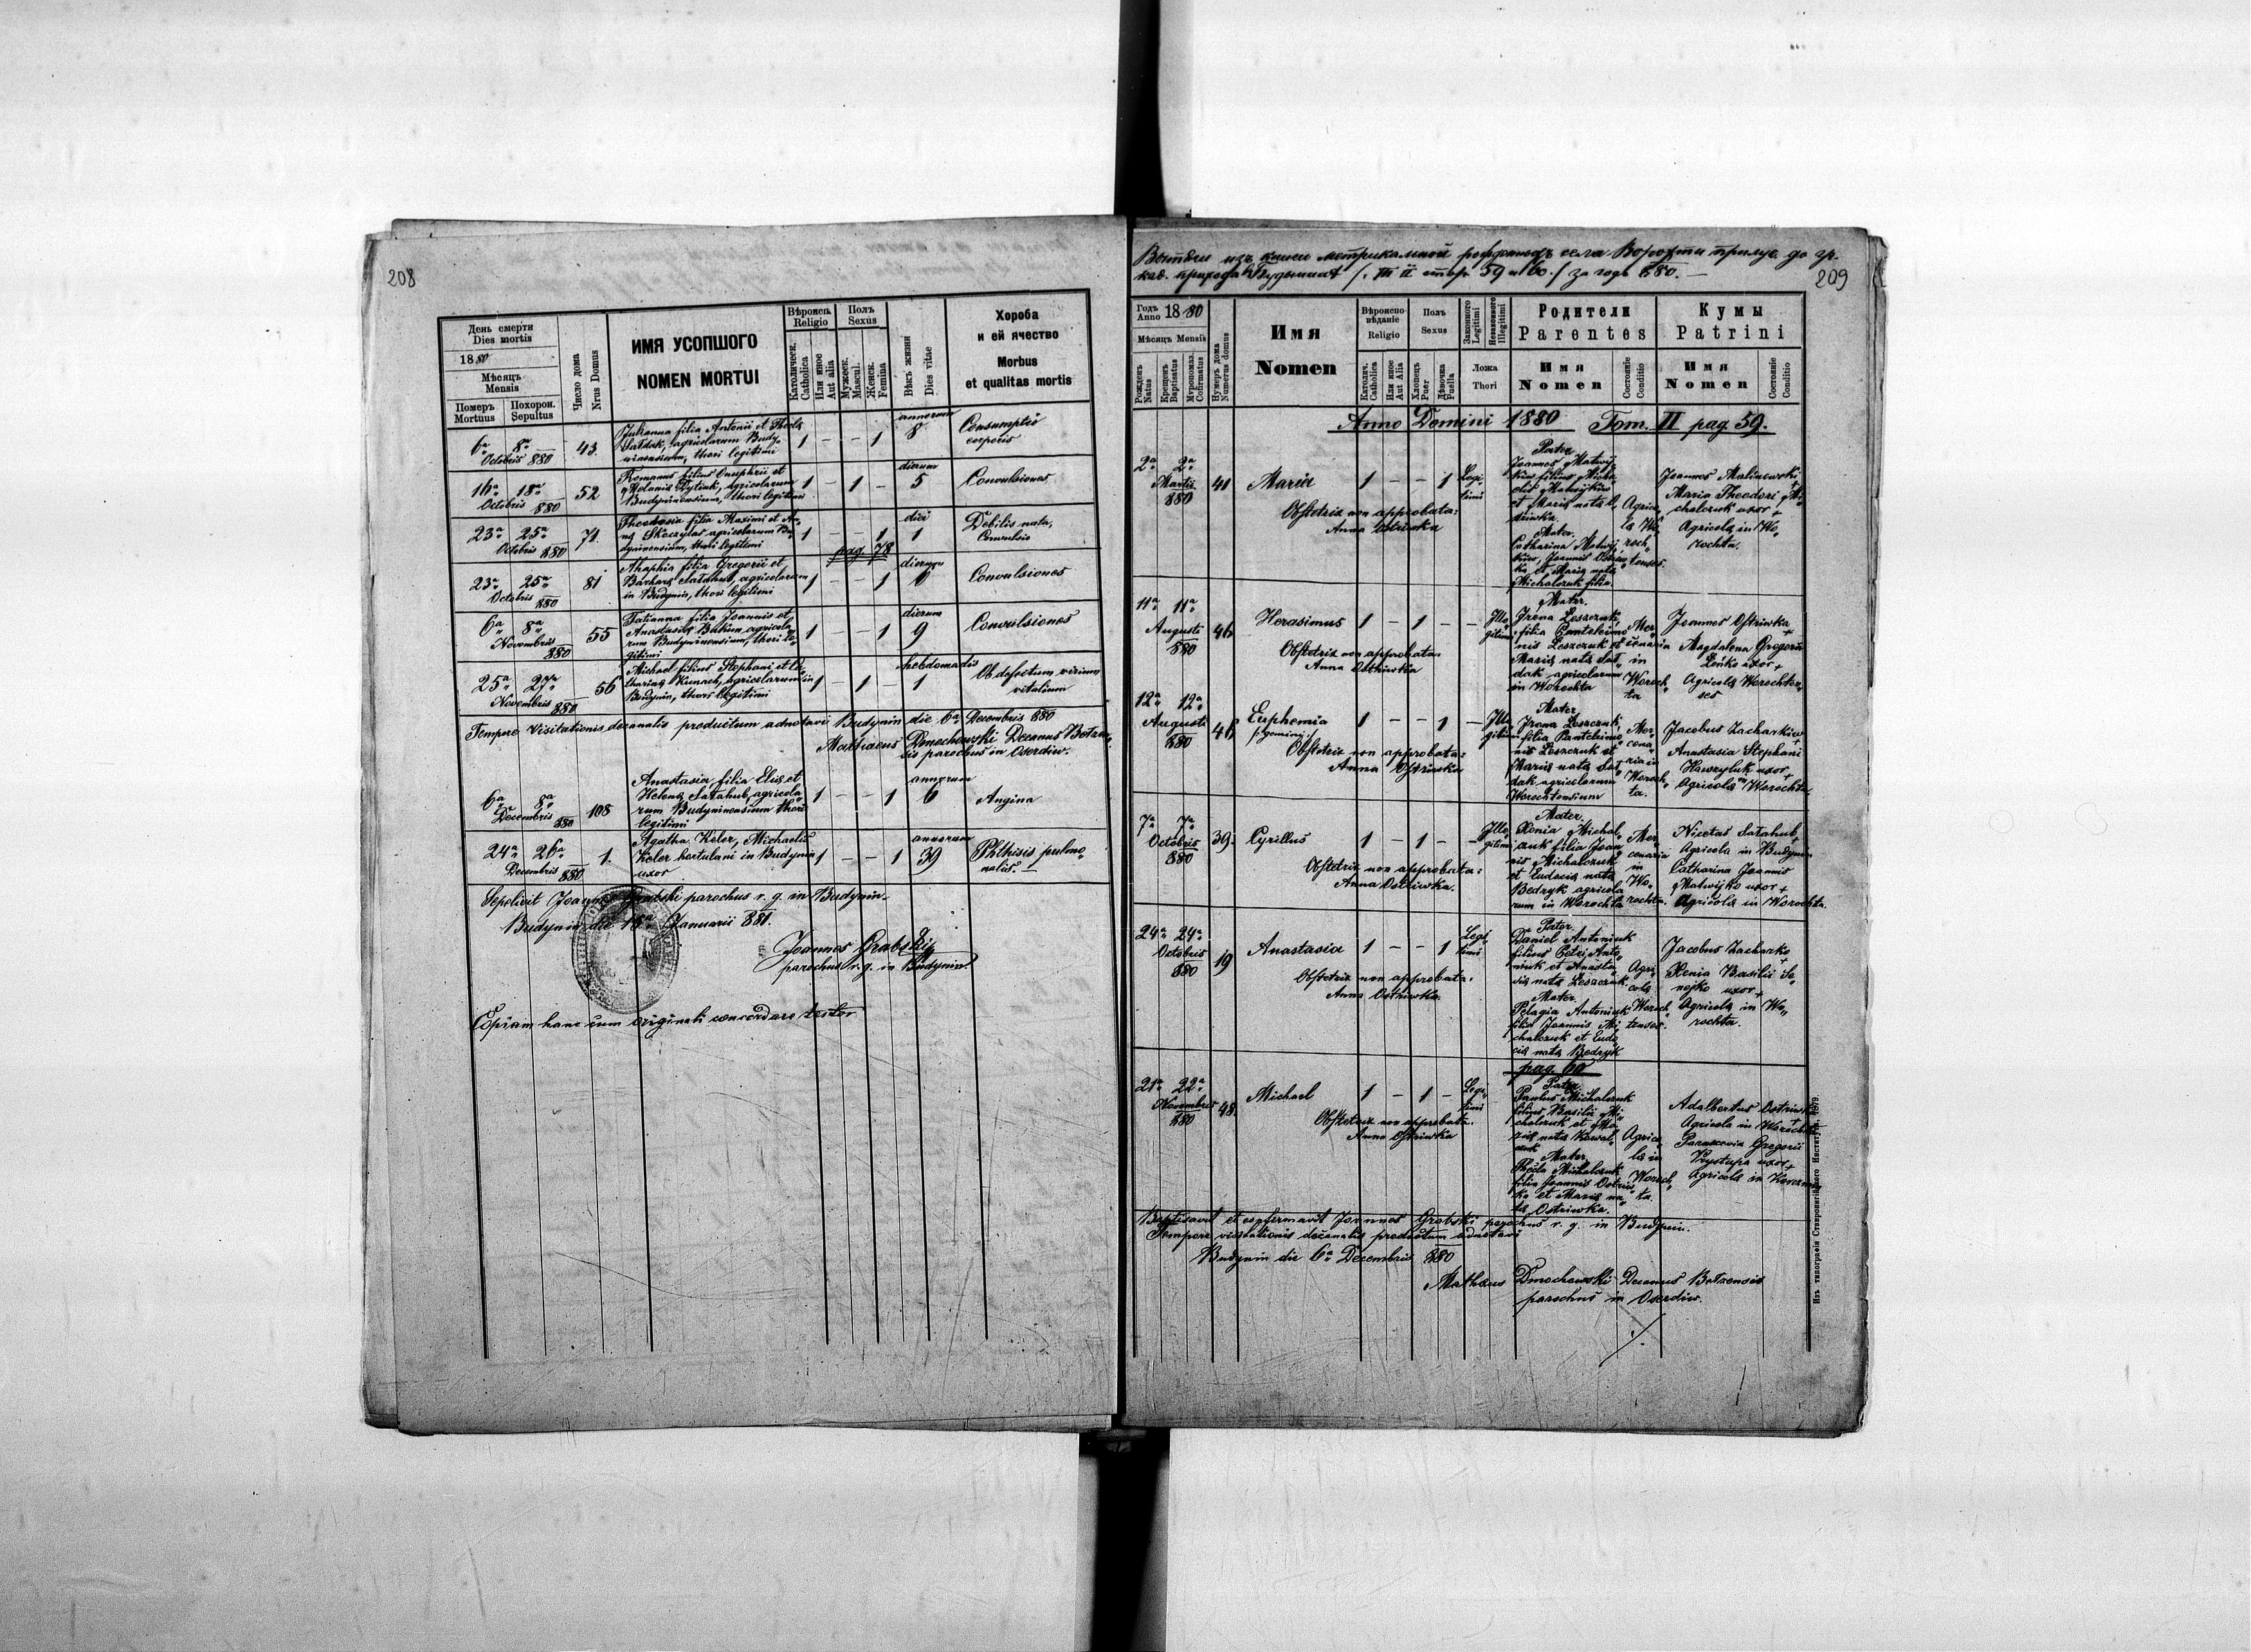 208
День смерти
Dies mortis
1880
Мѣсяцъ
Mensis
Померъ
Mortuus
Похорон.
Sepultus
Число дома
Nrus Domus
ИМЯ УСОПШОГО
NOMEN MORTUI
Вѣроисп.
Religio
Католическ.
Catholica
Или иное
Aut alia
Полъ
Sexus
Мужеск.
Mascul.
Женск.
Femina
Вѣкъ жизни
Dies vitae
Хороба
и ей ячество
Morbus
et qualitas mortis
6a 8a
Octobris 880
43.
Julianna filia Antonii et Theclę
Sałdak, agricolarum Budy„
ninensium, thori legitimi
1 – – 1
annorum
8
Consumptio
corporis
16a 18a
Octobris 880
52
Romanus filius Onuphrii et
Melanię Dytiuk, agricolarum
Budyninensium, thori legitimi
1 – 1 –
dierum
5
Convulsiones
23a 25a
Octobris 880
71.
Theodosia filia Maximi et An„
nę Skoczylas agricolarum Bu„
dyninensium, thori legitimi
1 – – 1
diei
1
Debilis nata,
Convulsio
pag. 78
23a 25a
Octobris 880
81
Ahaphia filia Gregorii et
Barbarę Satahub, agricolarum
in Budynin, thori legitimi
1 – – 1
dierum
Convulsiones
6a 8a
Novembris
880
55
Tatianna filia Joannis et
Anastasię Butrin agricola„
rum Budyninensium, thori le„
gitimi
1 – – 1
dierum
9
Convulsiones
25a 27a
Novembris 880
56
Michael filius Stephani et Ca„
tharinę Kunach, agricolarum in
Budynin, thori legitimi
1 – 1 –
hebdomadis
1
Ob defectum virium
vitalium
Tempore Visitationis decanalis productum adnotavi Budynin die 6a Decembris 880
Mathaeus Dmochowski Decanus Bełzen„
sis parochus in Oserdiw.
6a 8a
Decembris 880
108
Anastasia filia Elię et
Helenę Satahub, agricola„
rum Budyninensium thori
legitimi
1 – – 1
annorum
6
Angina
24a 26a
Decembris 880
1.
Agatha Keler, Michaelis
Keler hortulani in Budynin
uxor
1 – – 1
annorum
39
Phthisis pulmo„
nalis. –
Sepelivit Joannes Grabski parochus r. g. in Budynin.
Budynin die 18a Januarii 881.
Joannes Grabskij
parochus r. g. in Budynin.
Copiam hanc cum originali concordare testor
209
Вытягъ изъ книги метрикальной села Ворохта до гр.
кат. прихода Будынинъ /. Т. II стор. 59 и 60./ за годъ 880. –
Годъ
Anno 1880
Мѣсяцъ Mensis
Рожденъ
Natus
Крещенъ
Baptisatus
Мѵропомаз.
Confirmatus
Нумеръ дома
Numerus domus
Имя
Nomen
Вѣроиспо-
вѣданіе
Religio
Католич.
Catholica
Или иное
Aut Alia
Полъ
Sexus
Хлопецъ
Puer
Дѣвочка
Puella
Законного
Legitimi
Незаконного
Illegitimi
Ложа
Thori
Родители
Parentes
Имя
Nomen
Состояніе
Conditio
Кумы
Patrini
Имя
Nomen
Состояніе
Conditio
Anno Domini 1880 Tom. II pag. 59.
2a 2a
Martii
880
41
Maria
1 – – 1
Legi„
timi
Obstetrix non approbata:
Anna Ostriwka
Pater
Joannes Matwij„
kiw filius Micha„
elis Matwijkiw
et Marię nata O„
striwka.
Mater.
Catharina Matwij„
kiw, Joannis Ostriw„
ka et Marię nata
Michalczuk filia.
Agrico„
lę Wo„
roch„
tenses.
Joannes Malinowski
+
Maria Theodori Mi„
chalczuk uxor
Agricolę in Wo„
rochta.
11a 11a
Augusti
880
46
Herasimus
1 – 1 – –
Ille„
gitimi
Obstetrix non approbata:
Anna Ostriwka
Mater.
Irena Leszczuk,
filia Panteleimo„
nis Leszczuk et
Marię nata Sał„
dak agricolarum
in Worochta
Mer„
cenaria
in
Woroch„
ta
Joannes Ostriwka
+
Magdalena Gregorii
Leńko uxor +
Agricolę Worochten„
ses
12a 12a
Augusti
880
46
Euphemia
/:gemini:/
1 – – 1 –
Ille„
gitimi
Obstetrix non approbata:
Anna Ostriwka
Mater
Irena Leszczuk,
filia Panteleimo„
nis Leszczuk et
Marię nata Sał„
dak agricolarum
Worochtensium
Mer„
cena„
ria in
Woroch„
ta.
Jacobus Zacharkiw
+
Anastasia Stephani
Hawryluk uxor +
Agricolę in Worochta
7a 7a
Octobris
880
39.
Cyrillus
1 – 1 – –
Ille„
gitimi
Obstetrix non approbata:
Anna Ostriwka.
Mater,
Xenia Michal„
czuk filia Joan„
nis Michalczuk
et Eudocię nata
Bedryk agricola„
rum in Worochta
Mer„
cenaria
in
Wo„
rochta.
Nicetas Satahub,
Agricola in Budynin
Catharina Joannis
Matwijko uxor +
Agricola in Worochta.
24a 24a
Octobris
880
19
Anastasia
1 – – 1
Legi„
timi
Obstetrix non approbata:
Anna Ostriwka.
Pater.
Daniel Antoniuk
filius Petri Anto„
niuk et Anasta„
się nata Leszczuk.
Mater.
Pelagia Antoniuk
filia Joannis Mi„
chalczuk et Eudo„
cię nata Bedryk
Agri„
colę
Woroch„
tenses.
Jacobus Zacharko
+
Xenia Basilii Se„
nejko uxor +
Agricolę in Wo„
rochta.
pag. 60
21a 22a
Novembris
880
48.
Michael
1 – 1 –
Legi„
timi
Obstetrix non approbata:
Anna Ostriwka
Pater
Paulus Michalczuk
filius Basilii Mi„
chalczuk et Ma„
rię nata Kowal„
czuk
Mater,
Thecla Michalczuk
filia Joannis Ostriw„
ka et Marię na„
ta Ostriwka.
Agrico„
lę in
Woroch„
ta.
Adalbertus Ostriwka
Agricola in Worochta
Parascevia Gregorii
Prystupa uxor +
Agricola in
Baptisavit et confirmavit Joannes Grabski parochus r. g. in Budynin.
Tempore visitationis decanalis productum adnotavi
Budynin die 6a Decembris 880
Mathaeus Dmochowski Decanus Bełzensis
parochus in Oserdiw.
Изъ типографіи Ставропигійского Института. 1879.